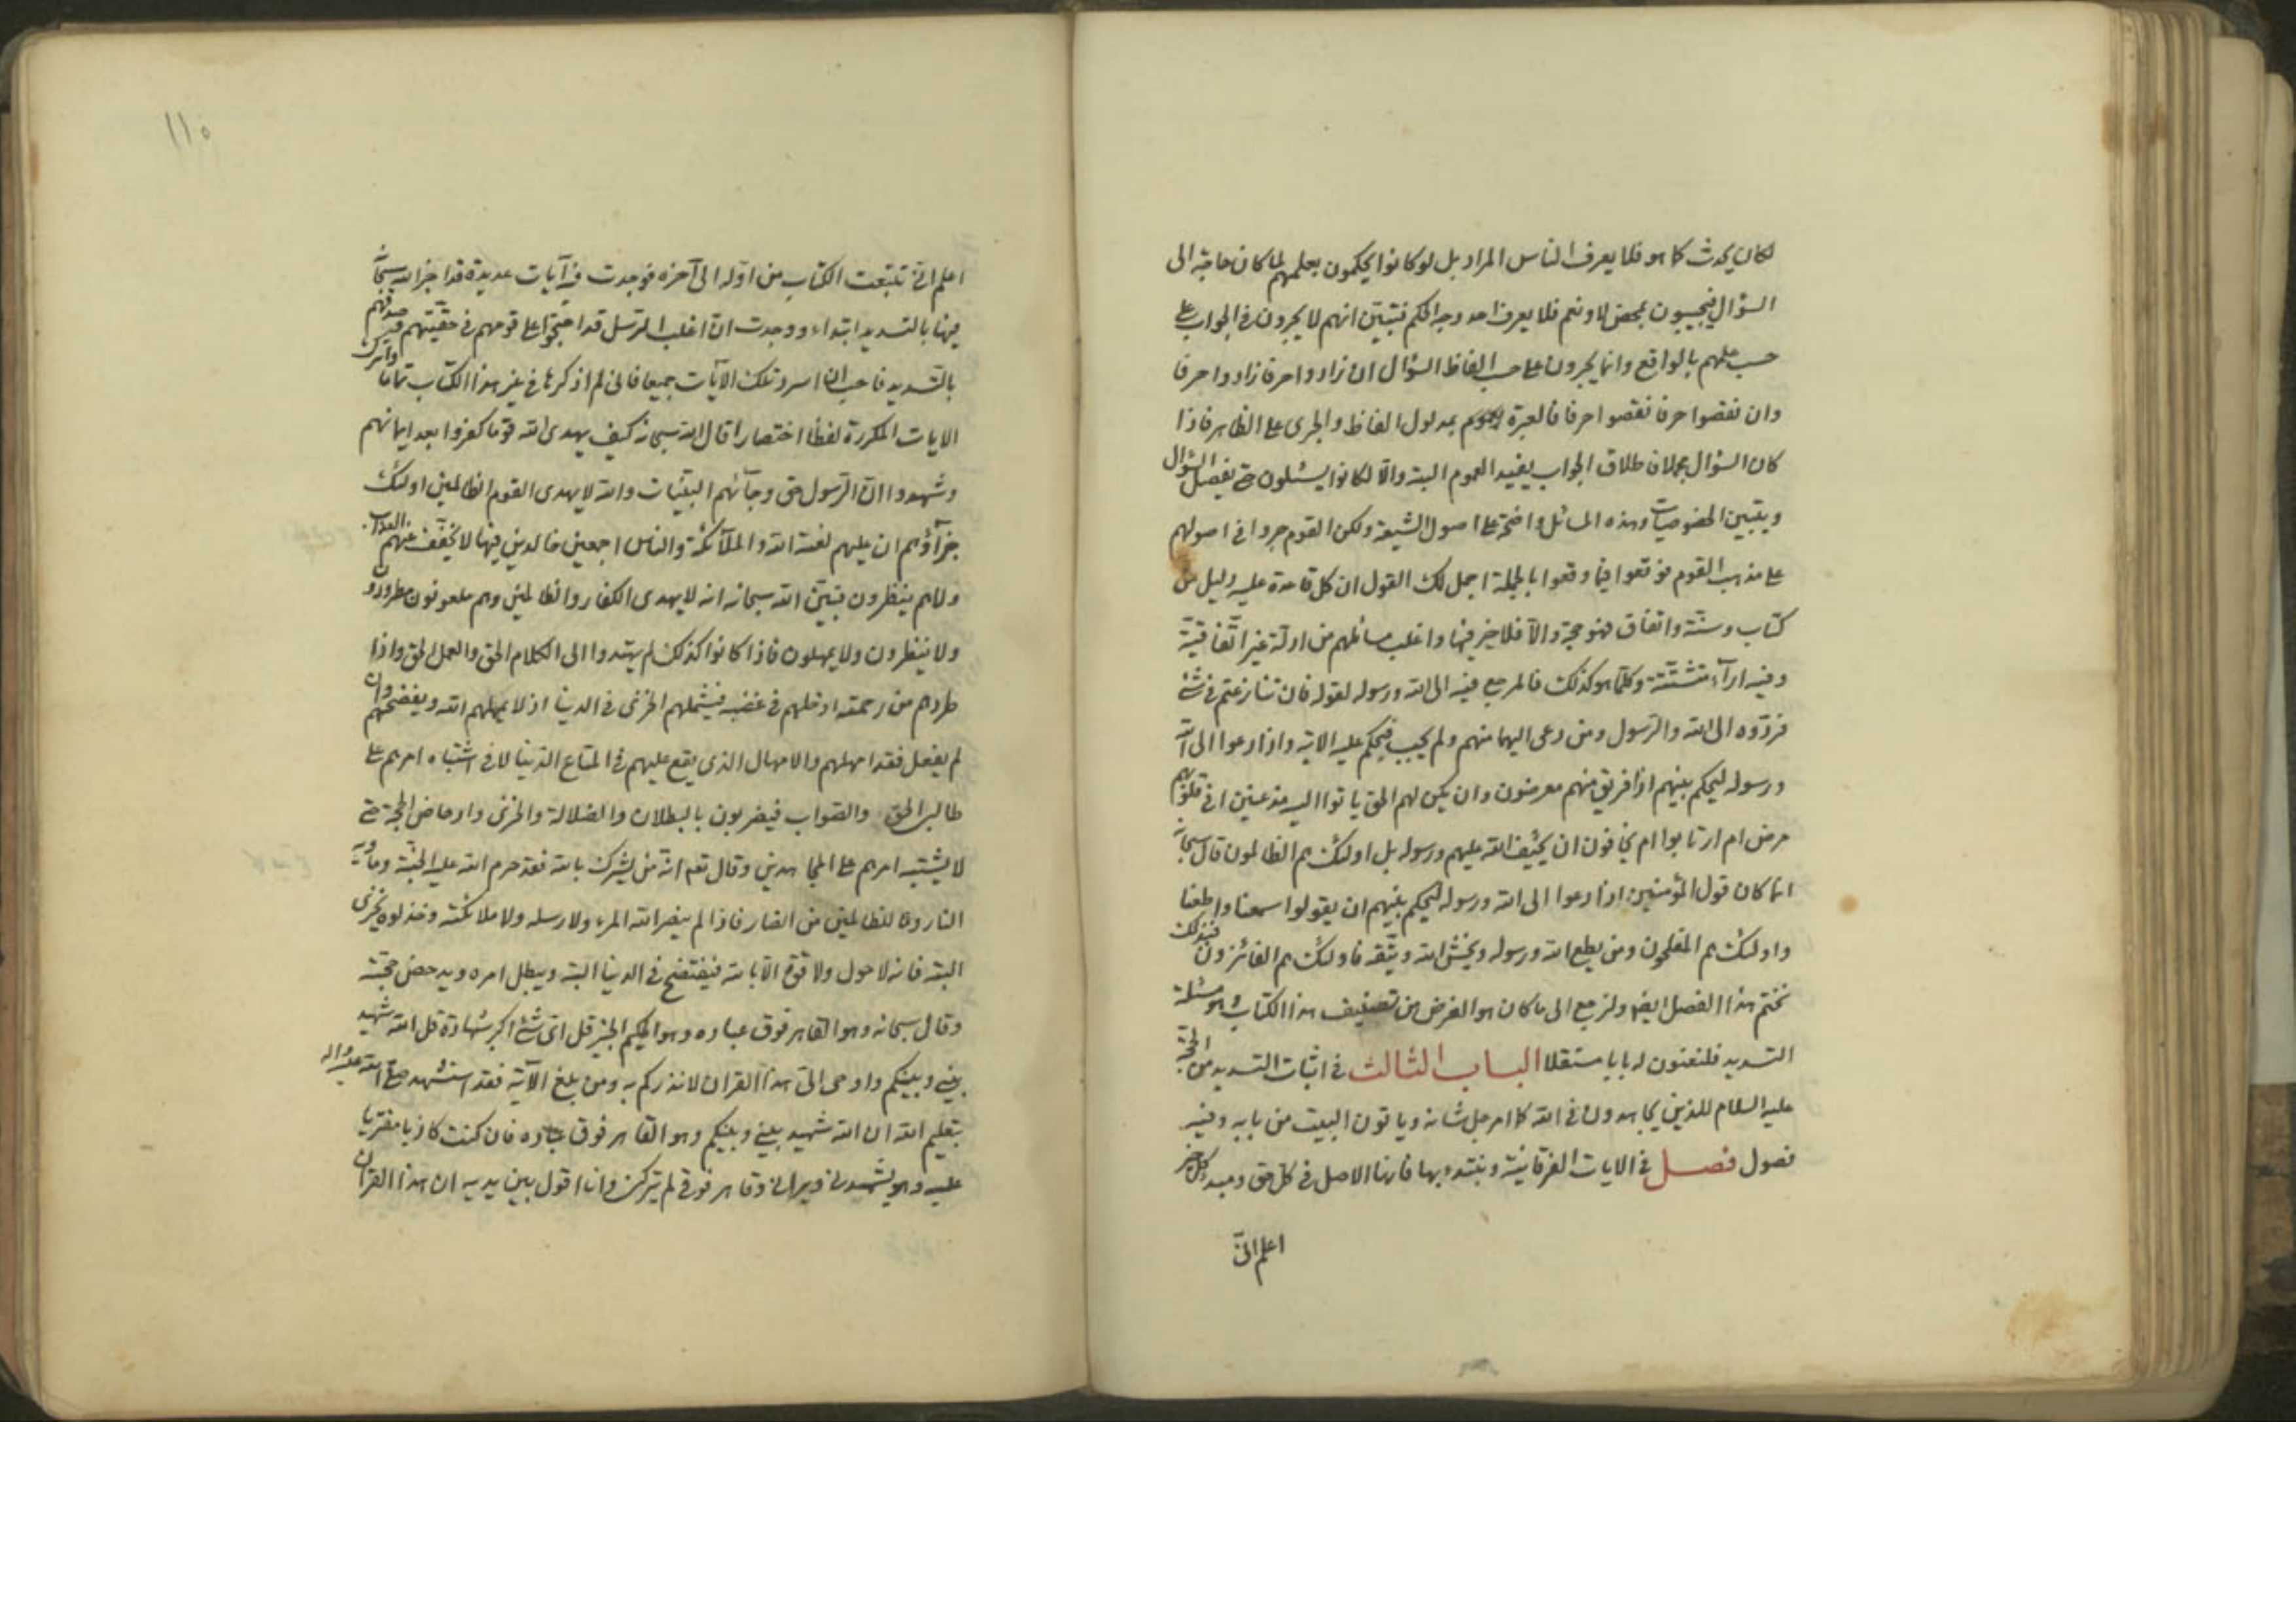 لكان يحدث كما هو فلما يعرف الناس المراد بل لو كانوا يحكمون بعلمهم لما كان حاجة الى
السؤال فيجيبون بمحض لا ونعم فلا يعرف احد وجه الحكم فتبين انهم لا يجرون في الجواب على
حسب علمهم بالواقع وانما يجرون على حسب الفاظ السؤال ان زادوا حرفا زادوا حرفا
وان نقصوا حرفا نقصوا حرفا فالعبرة بمدلول الفاظ والجرى على الظاهر فاذا
كان السؤال مجملا فاطلاق الجواب يفيد العموم البتة والا لكانوا يسئلون حتى يفصل السؤال
ويتبين الخصوصيات وهذه المسائل واضحة على اصول الشيعة ولكن القوم جروا في اصولهم
على مذهب القوم فوقعوا فيما وقعوا بالجملة اجمل لك القول ان كل قاعدة عليه دليل من
كتاب وسنة واتفاق فهو حجة والا فلا خير فيها واغلب مسائلهم من ادلة غير اتفاقية
وفيه اراء متشتتة وكلما هو كذلك فالمرجع فيه الى الله ورسوله لقوله فان تنازعتم في شئ
فردوه الى الله والرسول ومن دعى اليهما منهم ولم يجب فيحكم عليه الاية واذا دعوا الى الله
ورسوله ليحكم بينهم اذا فريق منهم معرضون وان يكن لهم الحق ياتوا اليه مذعنين افي قلوبهم
مرض ام ارتابوا ام يخافون ان يحيف الله عليهم ورسوله بل اولئك هم الظالمون قال سبحانه
انما كان قول المؤمنين اذا دعوا الى الله ورسوله ليحكم بينهم ان يقولوا سمعنا واطعنا
واولئك هم المفلحون ومن يطع الله ورسوله ويخش الله ويتقه فاولئك هم الفائزون فبذلك
نختم هذا الفصل ايضا ولنرجع الى ما كان هو الغرض من تصنيف هذا الكتاب وهو مسئلة
التسديد فلنعنون له بابا مستقلا الباب الثالث في اثبات التسديد من الحجة
عليه السلام للذين يجاهدون في الله كما امر جل شانه وياتون البيت من بابه وفيه
فصول فصل في الايات الفرقانية ونبتدء بها فانها الاصل في كل حق ومبدء كل خير
اعلم انى
١١٠
اعلم انى تتبعت الكتاب من اوله الى آخره فوجدت فيه آيات عديدة قد اخبر الله سبحانه
فيها بالتسديد ابتداء ووجدت ان اغلب الرسل قد احتجوا على قومهم في حقيتهم وصدقهم
بالتسديد فاحب ان اسرد تلك الآيات جميعا فانى لم اذكرها في غير هذا الكتاب تماما واترك
الايات المكررة لفظا اختصارا قال الله سبحانه كيف يهدى الله قوما كفروا بعد ايمانهم
وشهدوا ان الرسول حق وجآئهم البينات والله لا يهدى القوم الظالمين اولئك
جزآؤهم ان عليهم لعنة الله والملآئكة والناس اجمعين خالدين فيها لا يخفف عنهم العذاب
ولاهم ينظرون فتبين الله سبحانه انه لا يهدى الكفار والظالمين وهم ملعونون مطرودون
ولا ينظرون ولا يمهلون فاذا كانوا كذلك لم يهتدوا الى الكلام الحق والعمل الحق واذا
طردهم من رحمته ادخلهم في غضبه فيشملهم الخزى في الدنيا اذ لا يمهلهم الله ويفضحهم وان
لم يفعل فقد امهلهم والامهال الذى يقع عليهم في المتاع الدنيا لا في اشتباه امرهم على
طالبى الحق والصواب فيضربون بالبطلان والضلالة والخزى وادحاض الحجة حتى
لا يشتبه امرهم على المجاهدين وقال تعم انه من يشرك بالله فقد حرم الله عليه الجنة ومأويه
النار وما للظالمين من انصار فاذا لم ينصر الله المرء ولا رسله ولا ملائكته وخذلوه يخزى
البتة فانه لا حول ولا قوة الا بالله فيفتضح في الدنيا البتة ويبطل امره ويدحض حجته
وقال سبحانه وهو القاهر فوق عباده وهو الحكيم الخبير قل اى شئ اكبر شهادة قل الله شهيد
بينى وبينكم واوحى الى هذا القران لانذركم به ومن بلغ الآية فقد استشهد صلى الله عليه واله
بتعليم الله ان الله شهيد بينى وبينكم وهو القاهر فوق عباده فان كنت كاذبا مفتريا
عليه وهو يشهدنى ويرانى وقاهر فوقى لم يتركنى وانا اقول بين يديه ان هذا القران